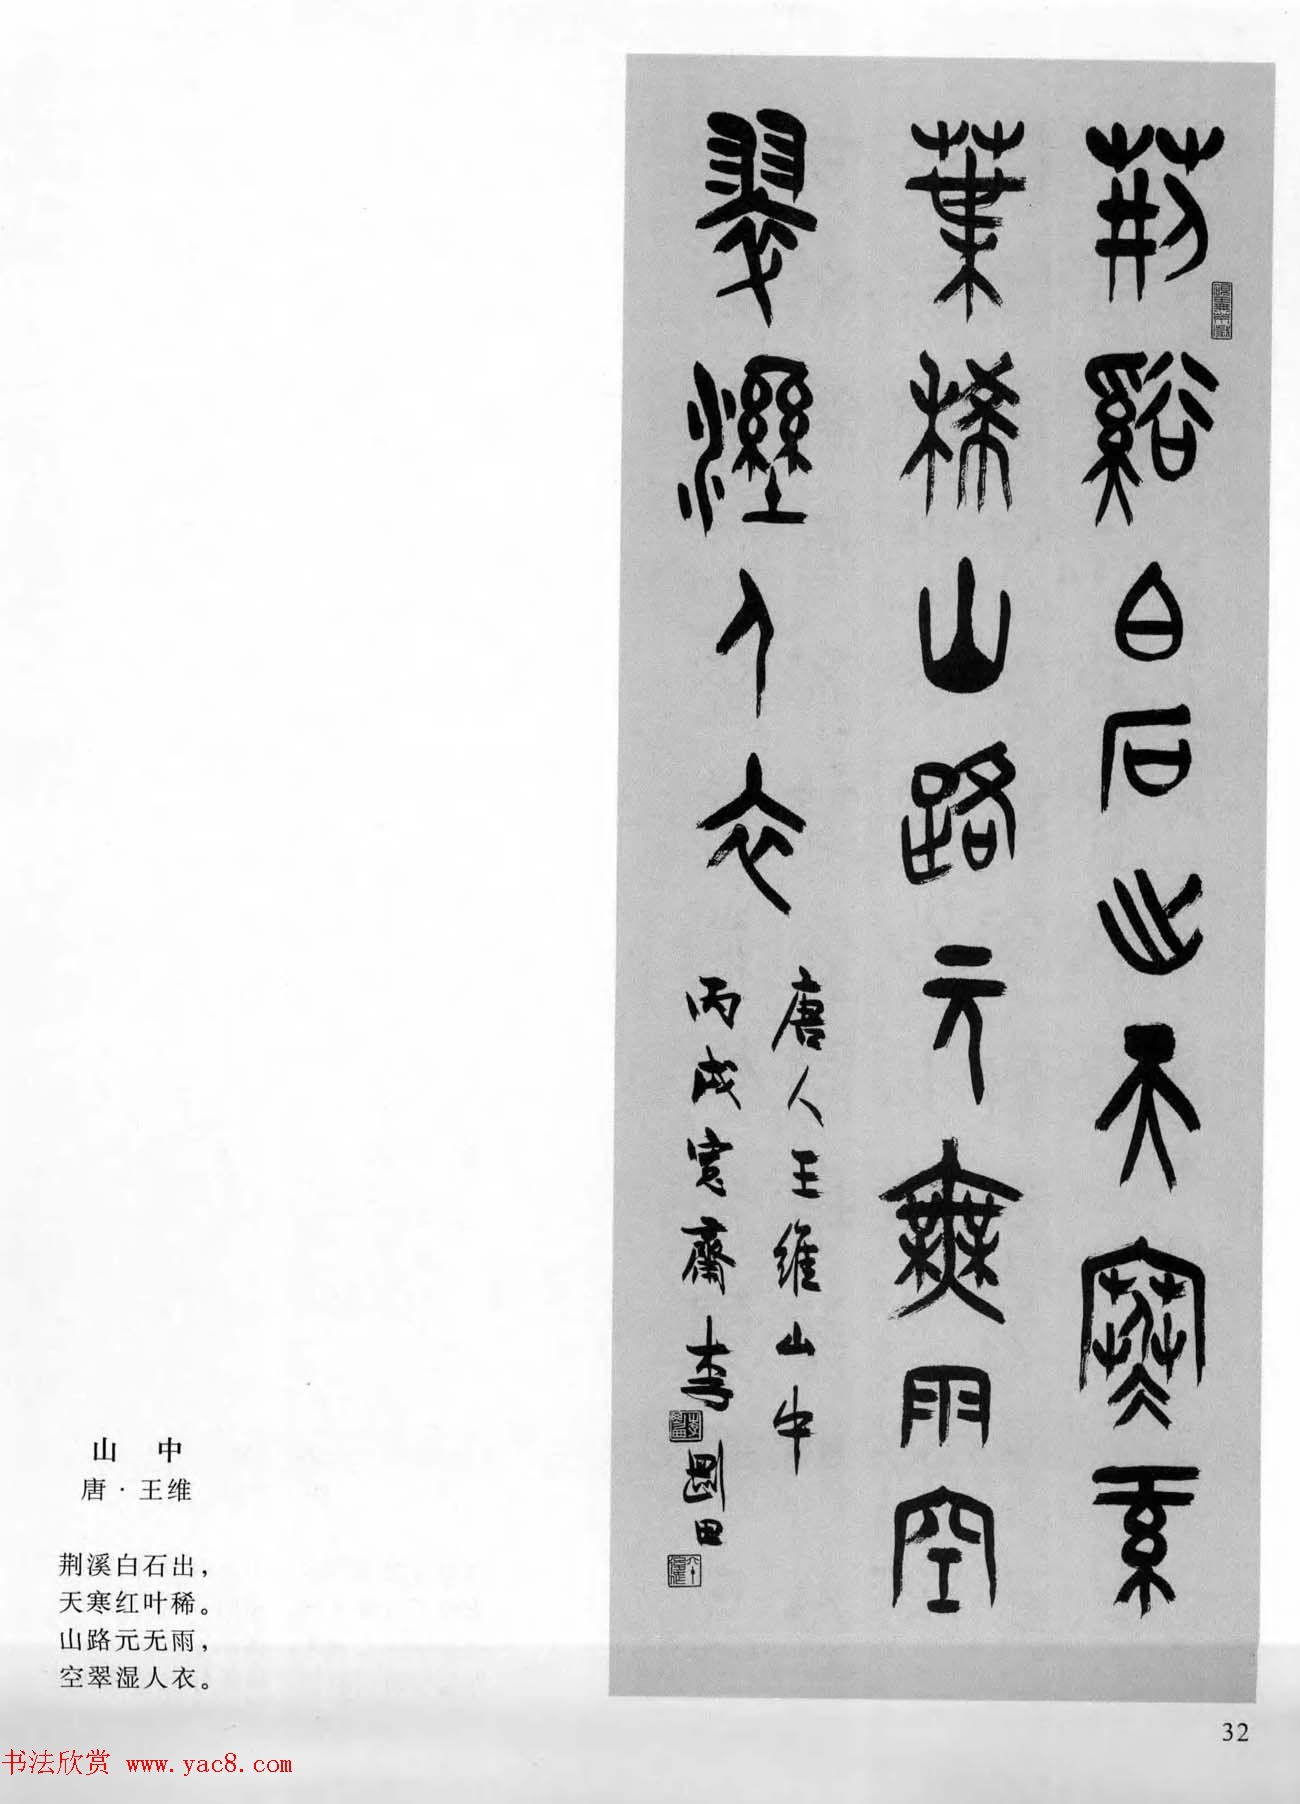 荆谿白石出天寒紅
葉稀山路元無雨空
翠溼人衣
唐人王維山中
丙戌寬齋李剛田
山 中
唐·王维
荆溪白石出，
天寒红叶稀。
山路元无雨，
空翠湿人衣。
32
书法欣赏 www.yac8.com